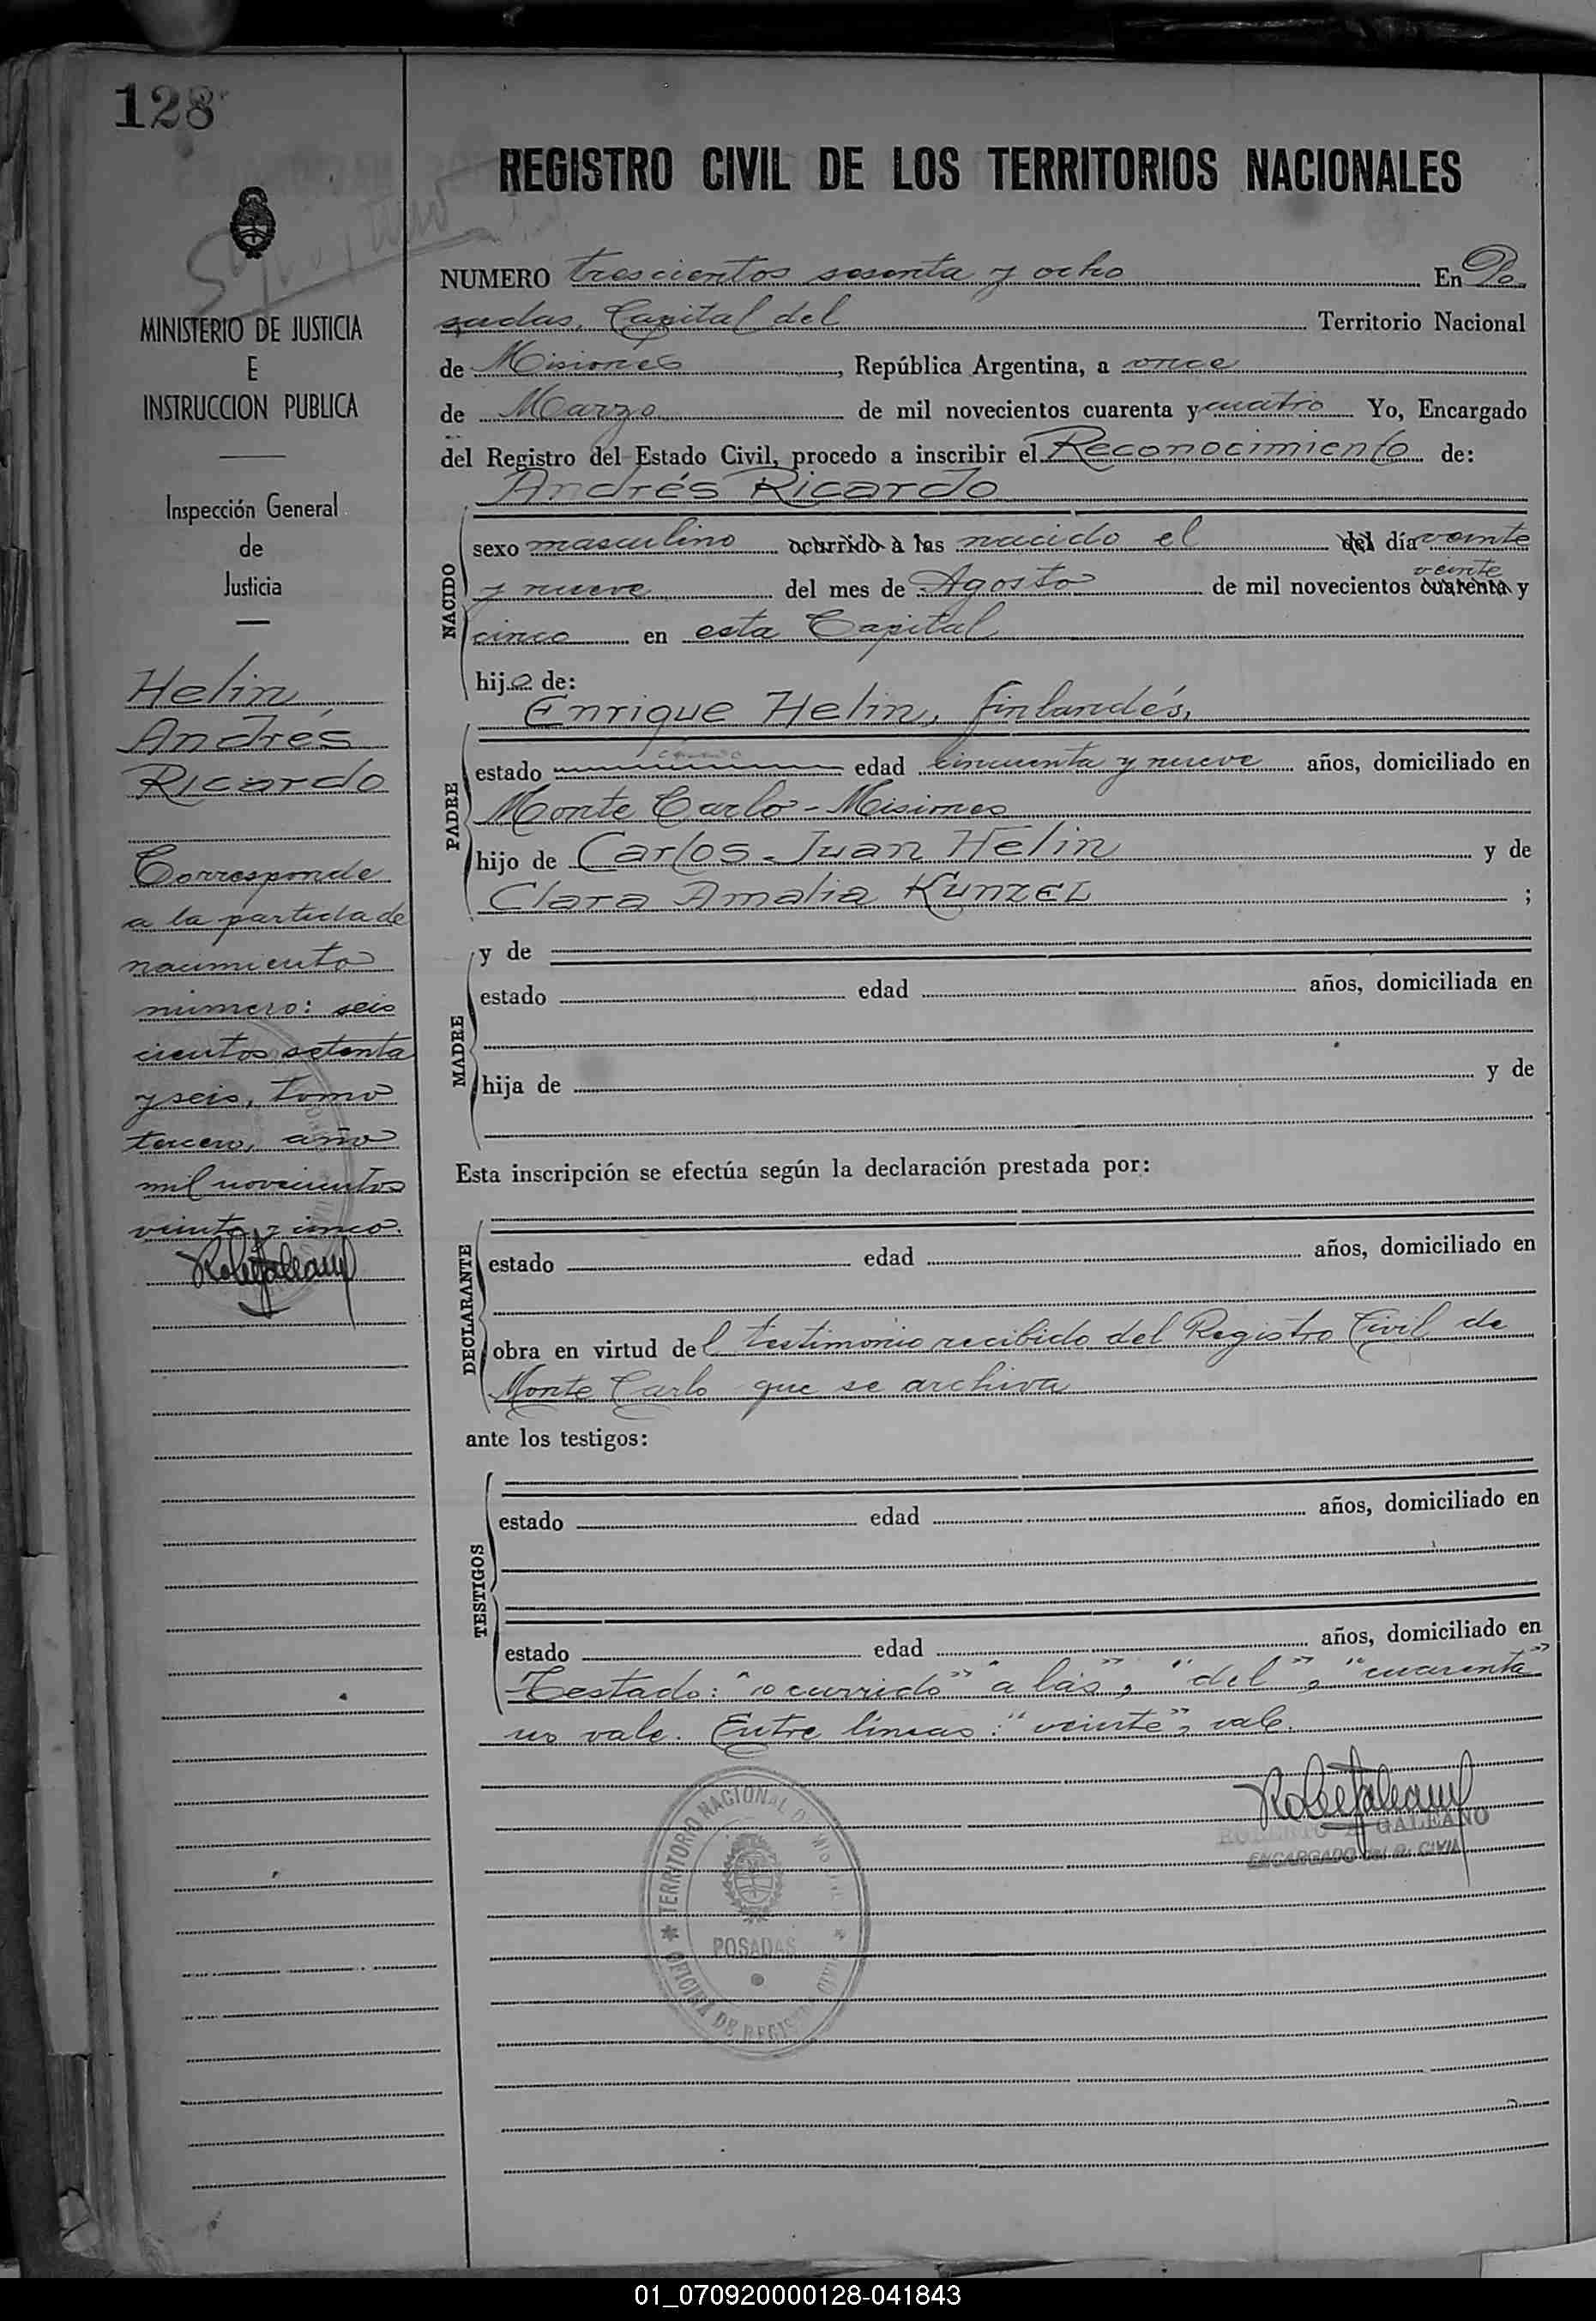 128
REGISTRO CIVIL DE LOS TERRITORIOS NACIONALES
MINISTERIO DE JUSTICIA
E
INSTRUCCION PUBLICA
Inspección General
de
Justicia
Helin,
Andrés
Ricardo
Corresponde
a la partida de
nacimiento
número: seis
cientos setenta
y seis, tomo
tercero, año
mil novecientos
veinte y cinco.
NUMERO trescientos sesenta y ocho En Po
sadas, Capital del Territorio Nacional
de Misiones, República Argentina, a once
de Marzo de mil novecientos cuarenta y cuatro Yo, Encargado
del Registro del Estado Civil, procedo a inscribir el Reconocimiento de:
Andrés Ricardo
NACIDO
sexo masculino ocurrido a las nacido el del día veinte
veinte
y nueve del mes de Agosto de mil novecientos cuarenta y
cinco en esta Capital
hijo de:
Enrique Helin, finlandés,
PADRE
estado edad cincuenta y nueve años, domiciliado en
Monte Carlo - Misiones
hijo de Carlos Juan Helin y de
Clara Amalia Kunzel ;
MADRE
y de
estado edad años, domiciliada en
hija de y de
Esta inscripción se efectúa según la declaración prestada por:
DECLARANTE
estado edad años, domiciliado en
obra en virtud del testimonio recibido del Registro Civil de
Monte Carlo que se archiva
ante los testigos:
TESTIGOS
estado edad años, domiciliado en
estado edad años, domiciliado en
Testado: "ocurrido" "a las", "del", "cuarenta"
no vale. Entre líneas: "veinte", vale.
ROBERTO A. GALEANO
ENCARGADO del R. CIVIL
TERRITORIO NACIONAL DE MISIONES
POSADAS
OFICINA DE REGISTRO CIVIL
01_070920000128-041843